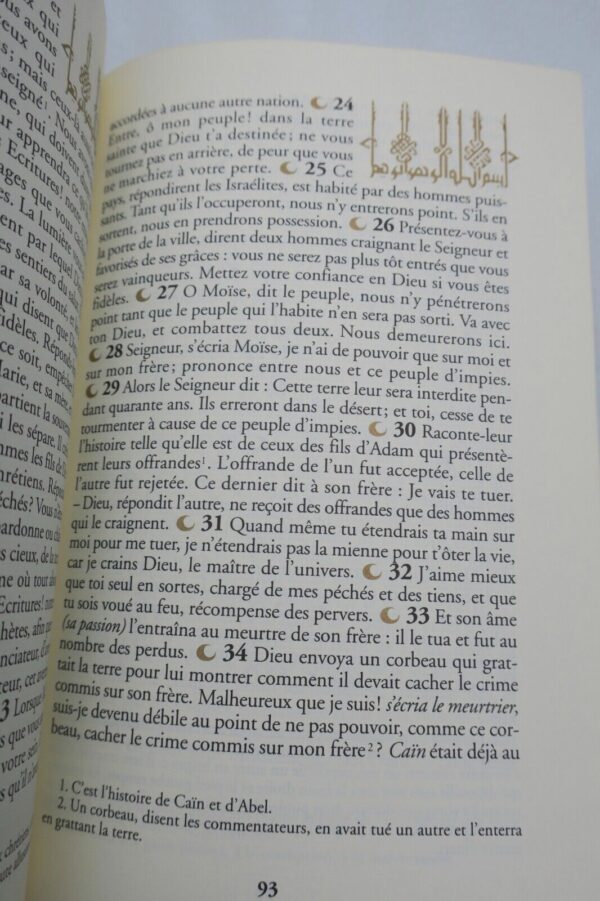 et
qui
ous avons
eux qui
seigné¹. Nous
; mais ceux-là
qui doivent
ur apprendre ce
Ecritures!
ages que vous
s. La lumière
ent par lequel
s sentiers du
ar sa volonté, et
qui disent que
fidèles.
ce soit,
Marie, et sa mère,
partient la
i les sépare. Il
mmes les fils de
chrétiens.
péchés? Vous
pardonne ou
es cieux, de la
ne où tout
Ecritures!
hètes, afin
nciateur,
teur, cet
3 Lorsque
s que vous
votre
qu'il n'
accordées à aucune autre nation. 24
Entre, ô mon peuple! dans la terre
sainte que Dieu t'a destinée; ne vous
tournez pas en arrière, de peur que vous
ne marchiez à votre perte. 25 Ce
pays, répondirent les Israélites, est habité par des hommes puis-
sants. Tant qu'ils l'occuperont, nous n'y entrerons point. S'ils en
sortent, nous en prendrons possession. 26 Présentez-vous à
la porte de la ville, dirent deux hommes craignant le Seigneur et
favorisés de ses grâces : vous ne serez pas plus tôt entrés que vous
serez vainqueurs. Mettez votre confiance en Dieu si vous êtes
fidèles. 27 O Moïse, dit le peuple, nous n'y pénétrerons
point tant que le peuple qui l'habite n'en sera pas sorti. Va avec
ton Dieu, et combattez tous deux. Nous demeurerons ici.
28 Seigneur, s'écria Moïse, je n'ai de pouvoir que sur moi et
sur mon frère; prononce entre nous et ce peuple d'impies.
29 Alors le Seigneur dit : Cette terre leur sera interdite pen-
dant quarante ans. Ils erreront dans le désert; et toi, cesse de te
tourmenter à cause de ce peuple d'impies. 30 Raconte-leur
l'histoire telle qu'elle est de ceux des fils d'Adam qui présentè-
rent leurs offrandes¹. L'offrande de l'un fut acceptée, celle de
l'autre fut rejetée. Ce dernier dit à son frère : Je vais te tuer.
– Dieu, répondit l'autre, ne reçoit des offrandes que des hommes
qui le craignent. 31 Quand même tu étendrais ta main sur
moi pour me tuer, je n'étendrais pas la mienne pour t'ôter la vie,
car je crains Dieu, le maître de l'univers. 32 J'aime mieux
que toi seul en sortes, chargé de mes péchés et des tiens, et que
tu sois voué au feu, récompense des pervers. 33 Et son âme
(sa passion) l'entraîna au meurtre de son frère : il le tua et fut au
nombre des perdus. 34 Dieu envoya un corbeau qui grat-
tait la terre pour lui montrer comment il devait cacher le crime
commis sur son frère. Malheureux que je suis! s'écria le meurtrier,
suis-je devenu débile au point de ne pas pouvoir, comme ce cor-
beau, cacher le crime commis sur mon frère²? Caïn était déjà au
1. C'est l'histoire de Caïn et d'Abel.
2. Un corbeau, disent les commentateurs, en avait tué un autre et l'enterra
en grattant la terre.
93